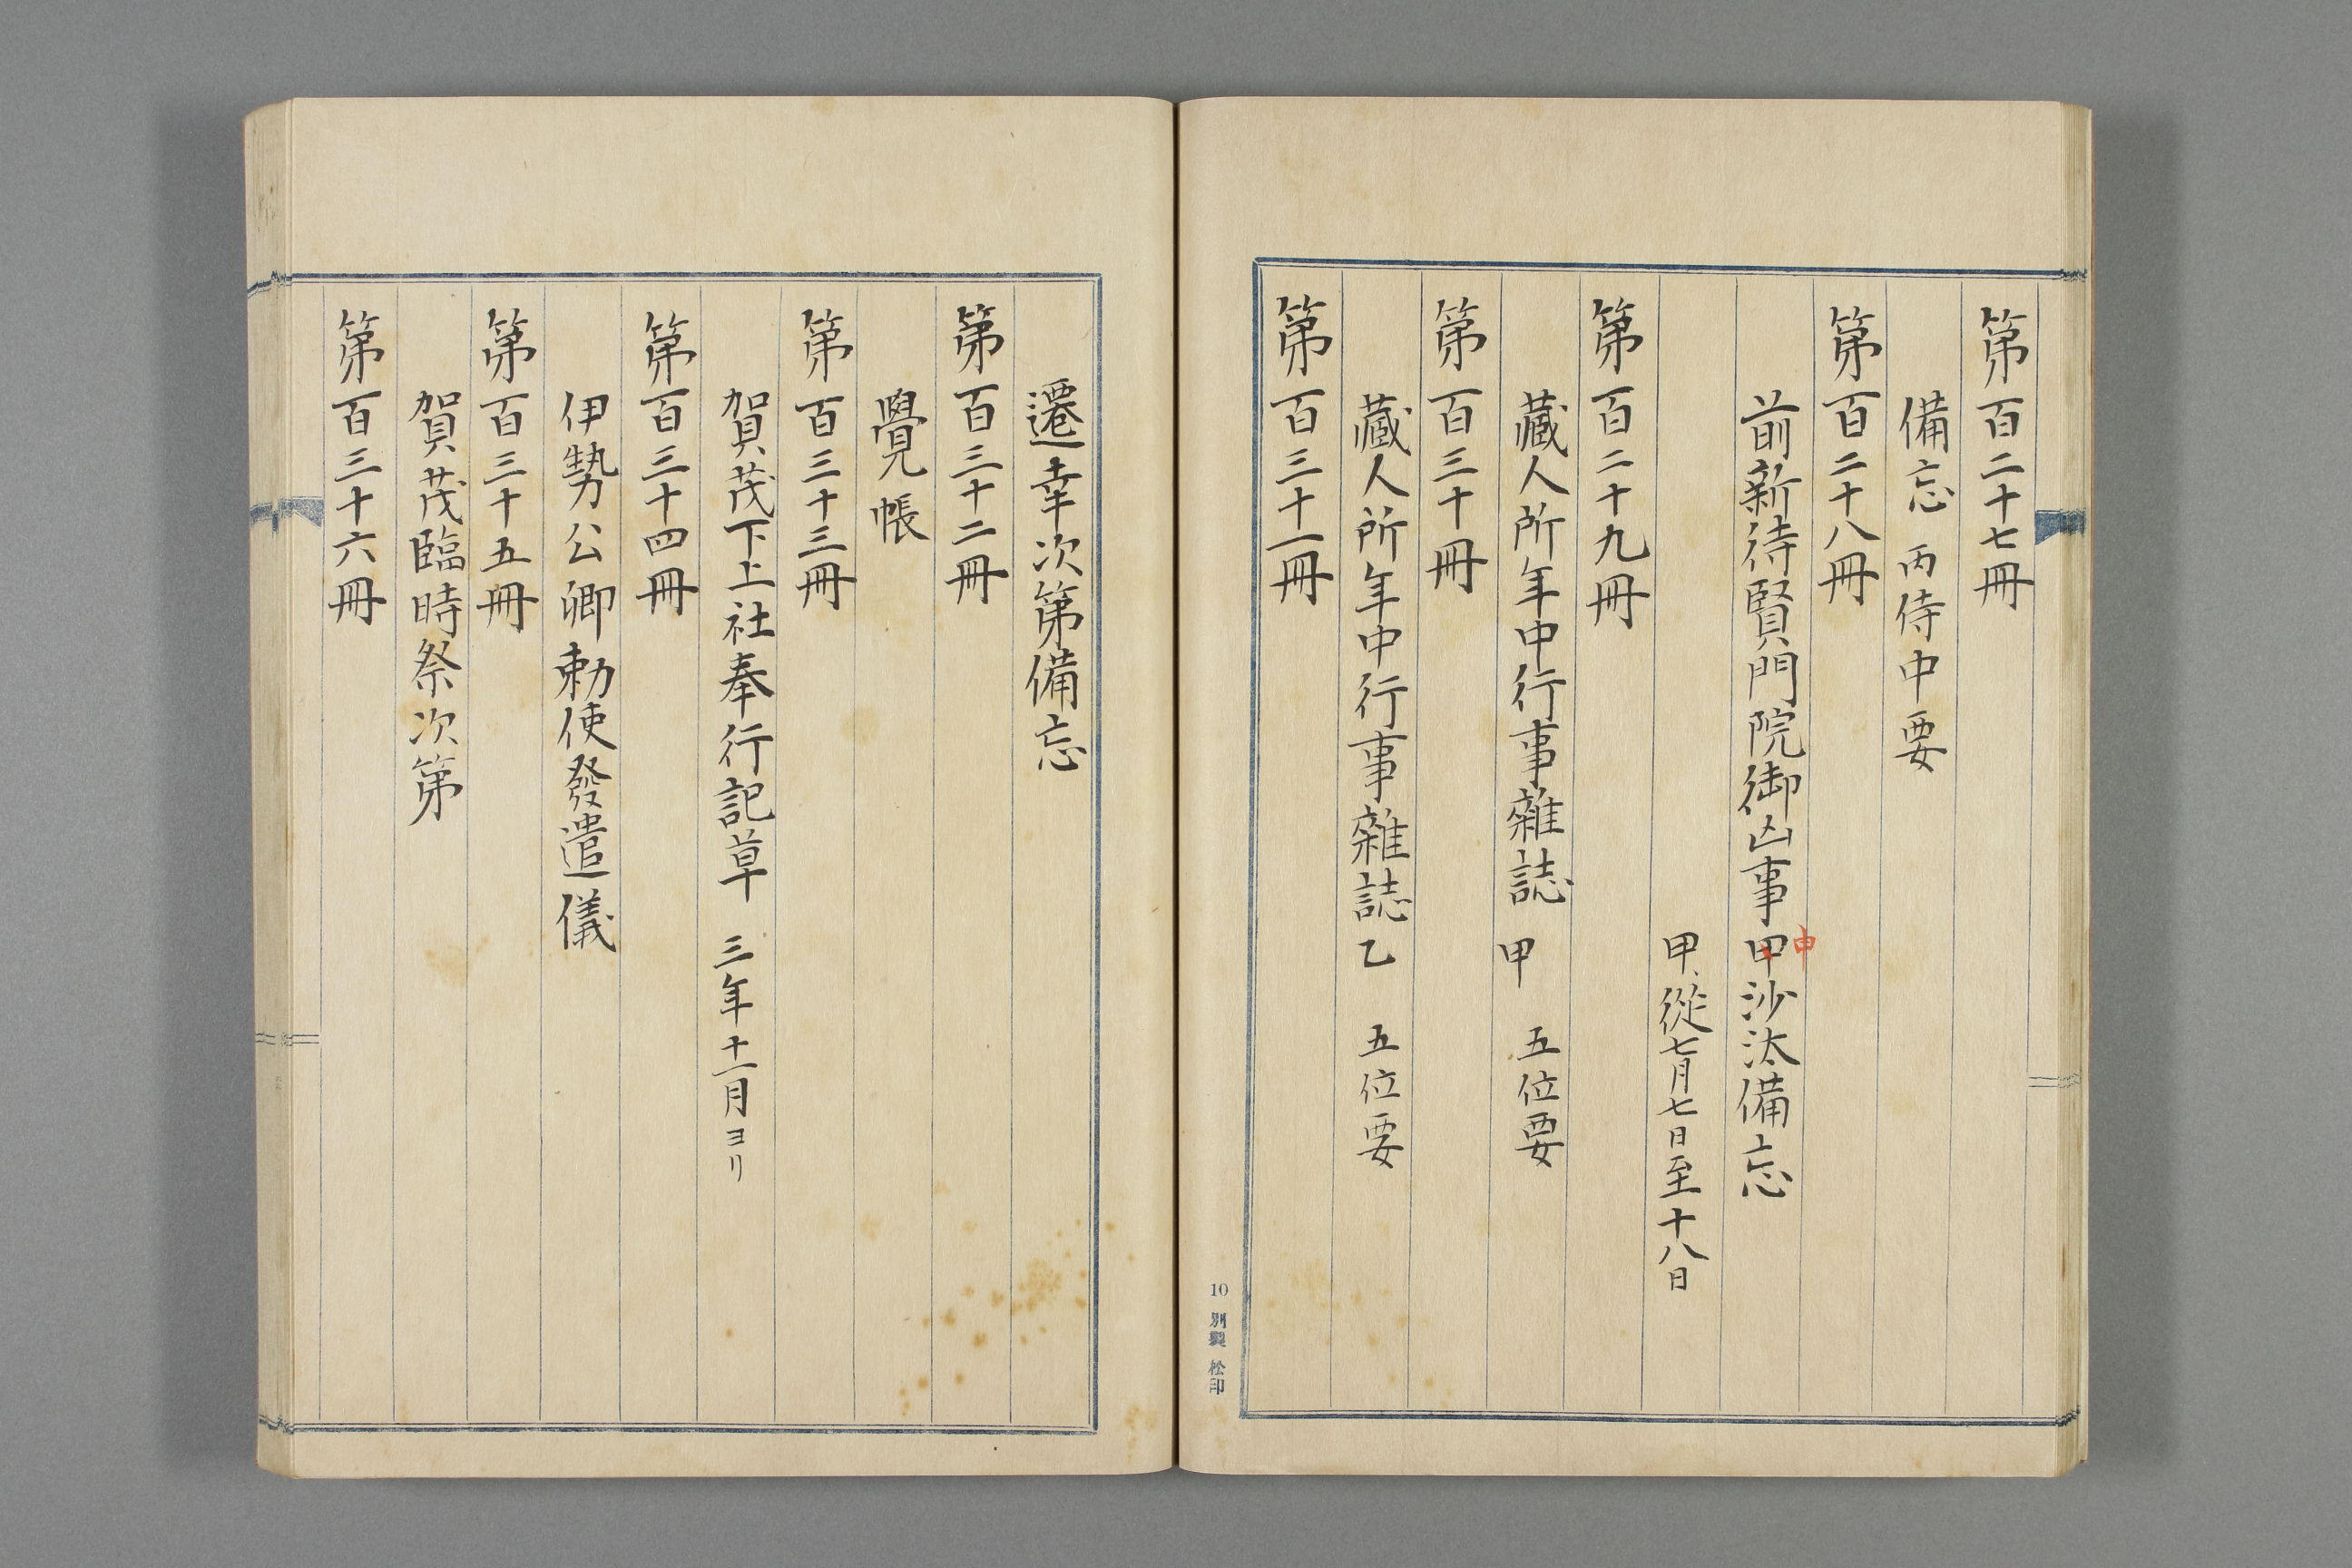 第百二十七冊
備忘 丙 侍中要
第百二十八冊
前新待賢門院御凶事甲沙汰備忘
申
甲、從七月七日至十八日
第百二十九冊
藏人所年中行事雜誌 甲 五位要
第百三十冊
藏人所年中行事雜誌 乙 五位要
第百三十一冊
10 別製 松印
遷幸次第備忘
第百三十二冊
覺帳
第百三十三冊
賀茂下上社奉行記草 三年十一月ヨリ
第百三十四冊
伊勢公卿勅使發遣儀
第百三十五冊
賀茂臨時祭次第
第百三十六冊